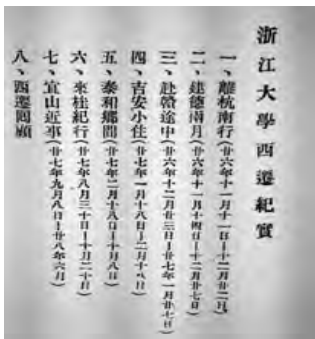 浙江大學西遷紀實
一、離杭南行(廿六年十一月十一日—十二月廿二日)
二、建德兩月(廿六年十一月十四日—十二月廿七日)
三、赴贛途中(廿六年十二月廿三日—廿七年一月廿七日)
四、吉安小住(廿七年一月十八日—二月十八日)
五、泰和鄉間(廿七年二月十八日—十月八日)
六、來桂紀行(廿七年八月三十日—十月二十日)
七、宜山近事(廿七年九月八日—廿八年六月)
八、西遷囘顧